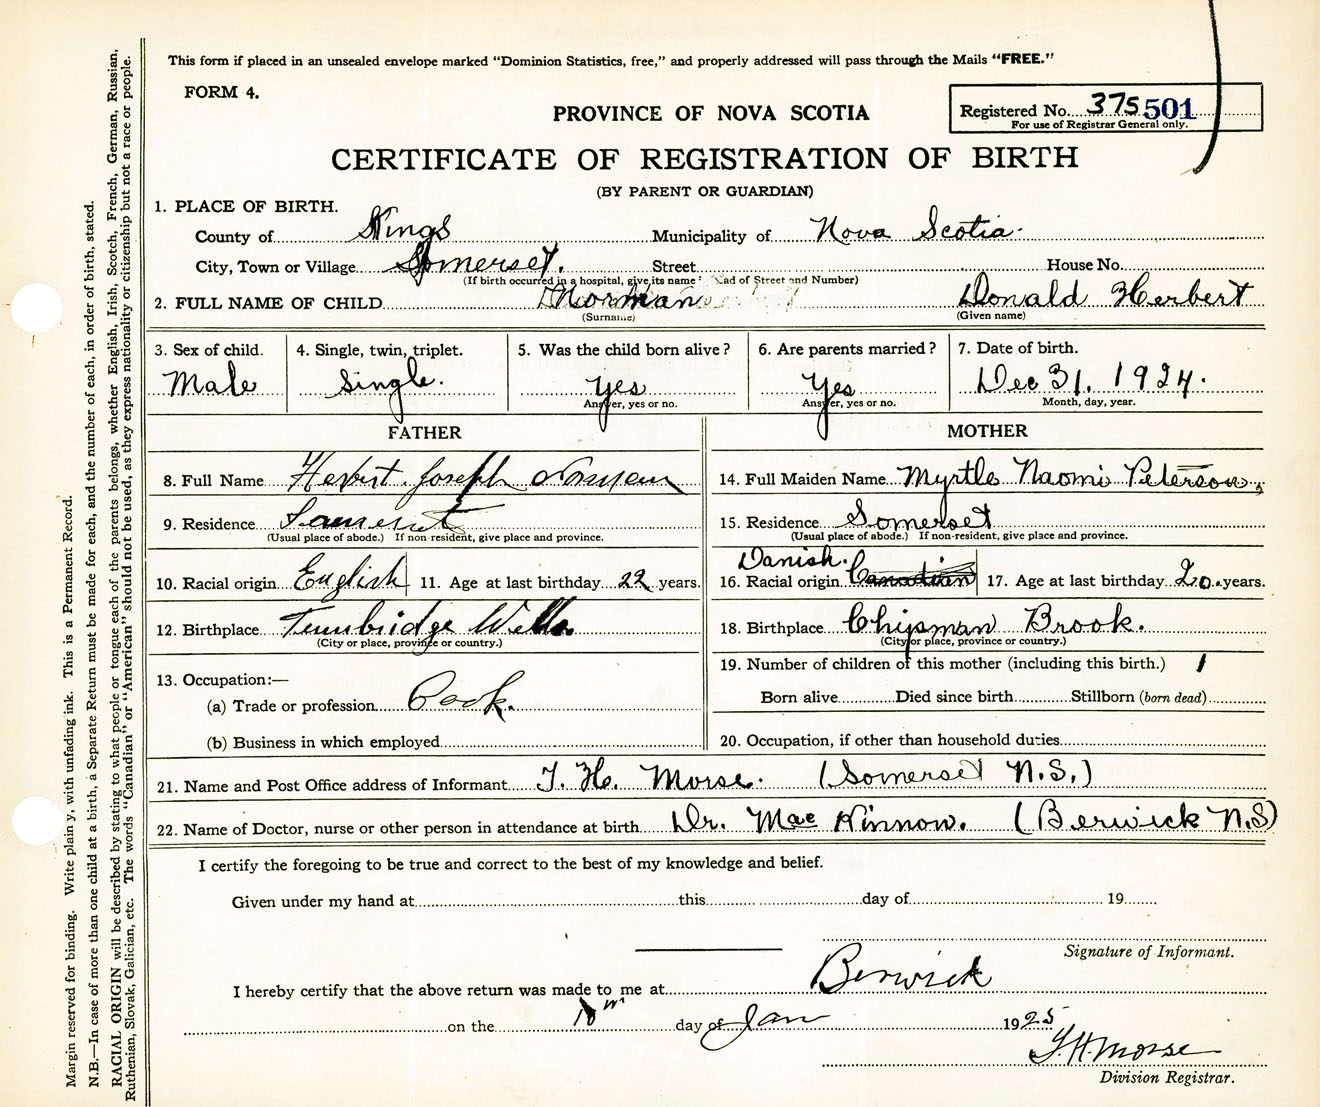 This form if placed in an unsealed envelope marked "Dominion Statistics, free," and properly addressed will pass through the Mails "FREE."
FORM 4.
PROVINCE OF NOVA SCOTIA
Registered No. 375 501
For use of Registrar General only.
CERTIFICATE OF REGISTRATION OF BIRTH
(BY PARENT OR GUARDIAN)
1. PLACE OF BIRTH.
County of Kings Municipality of Nova Scotia
City, Town or Village Somerset. Street House No.
(If birth occurred in a hospital, give its name instead of Street and Number)
2. FULL NAME OF CHILD Norman Donald Herbert
(Surname) (Given name)
3. Sex of child. 4. Single, twin, triplet. 5. Was the child born alive? 6. Are parents married? 7. Date of birth.
Male Single. yes Yes Dec 31, 1924.
Answer, yes or no. Answer, yes or no. Month, day, year.
FATHER MOTHER
8. Full Name Herbert Joseph Norman 14. Full Maiden Name Myrtle Naomi Peterson,
9. Residence Somerset 15. Residence Somerset
(Usual place of abode.) If non-resident, give place and province. (Usual place of abode.) If non-resident, give place and province.
Danish.
10. Racial origin English 11. Age at last birthday 22 years. 16. Racial origin Canadian 17. Age at last birthday 20. years.
12. Birthplace Tunbridge Wells. 18. Birthplace Chipman Brook.
(City or place, province or country.) (City or place, province or country.)
19. Number of children of this mother (including this birth.) 1
13. Occupation:—
(a) Trade or profession Cook. Born alive Died since birth Stillborn (born dead)
(b) Business in which employed 20. Occupation, if other than household duties
21. Name and Post Office address of Informant T. H. Morse. (Somerset N.S.)
22. Name of Doctor, nurse or other person in attendance at birth Dr. Mac Kinnon. (Berwick N.S)
I certify the foregoing to be true and correct to the best of my knowledge and belief.
Given under my hand at this day of 19
Signature of Informant.
I hereby certify that the above return was made to me at Berwick
on the 10th day of Jan 1925
T. H. Morse
Division Registrar.
Margin reserved for binding. Write plainly, with unfading ink. This is a Permanent Record.
N.B.—In case of more than one child at a birth, a Separate Return must be made for each, and the number of each, in order of birth, stated.
RACIAL ORIGIN will be described by stating to what people or tongue each of the parents belongs, whether English, Irish, Scotch, French, German, Russian,
Ruthenian, Slovak, Galician, etc. The words "Canadian" or "American" should not be used, as they express nationality or citizenship but not a race or people.